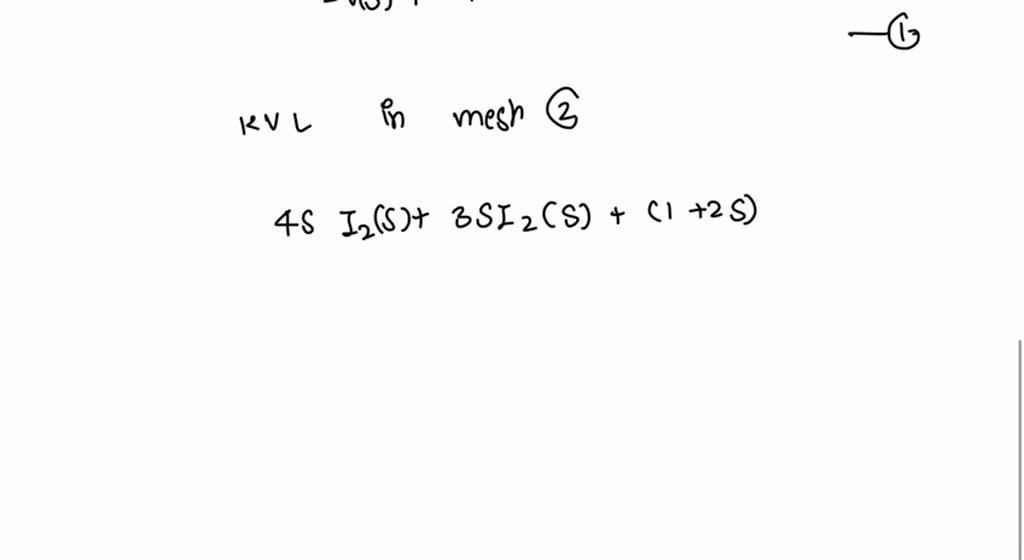 —①
KVL in mesh ②
4S I₂(S)+ 3SI₂(S) + (1 +2S)